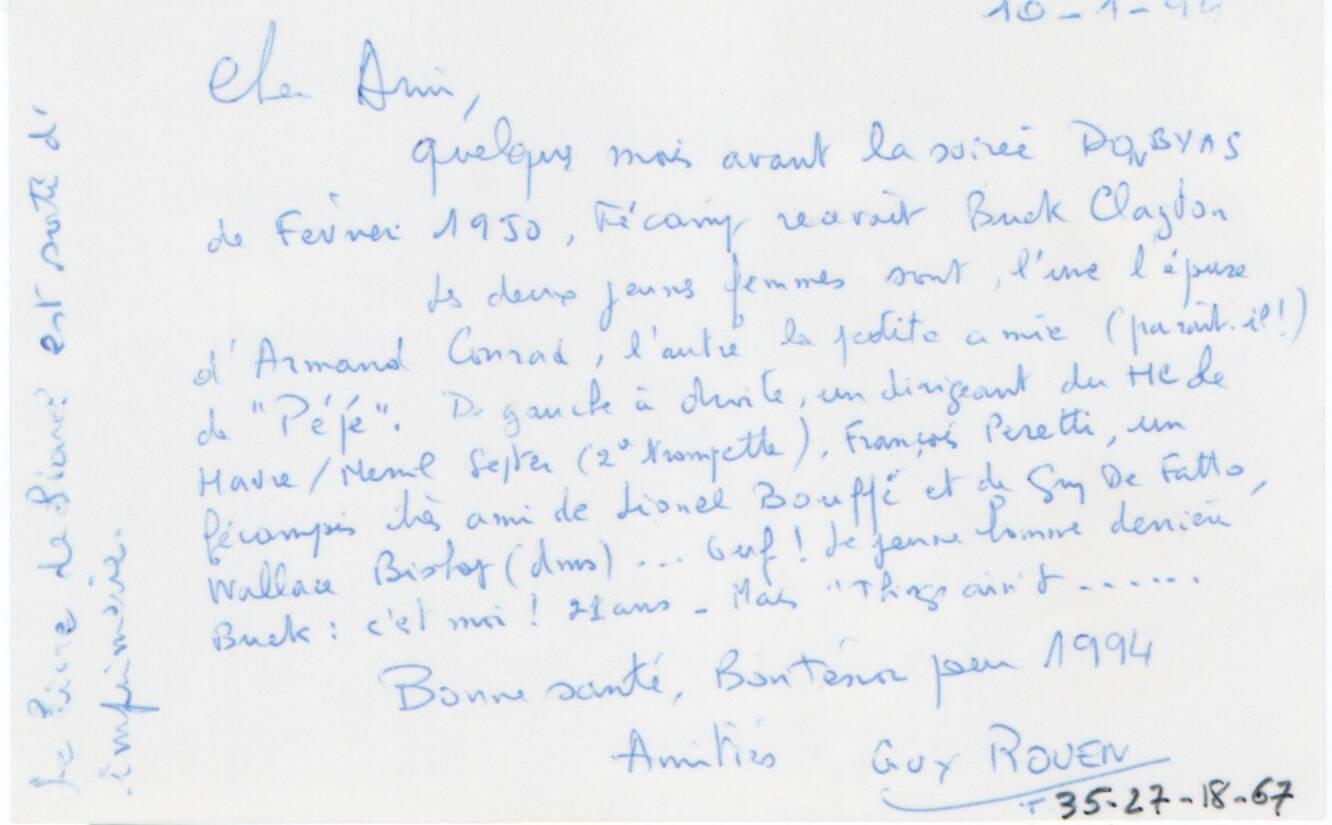 10-1-94
Cher Ami,
quelques mois avant la soirée DON BYAS
de Février 1950, Fécamp recevait Buck Clayton
Les deux jeunes femmes sont, l'une l'épouse
d'Armand Conrad, l'autre la petite amie (paraît-il!)
de "Péjé". De gauche à droite, un dirigeant du HC Le
Havre / Merril (2° trompette), François Peretti, un
fécampois très ami de Lionel Bouffé et de Guy De Fatto,
Wallace Bishop (dms) ... Ouf! Le jeune homme derrière
Buck : c'est moi ! 21 ans - Mais "Things ain't .......
Bonne santé, Bon Ténor pour 1994
Amitiés GUY ROUEN
T 35-27-18-67
Le livre de est sorti d'
imprimerie.